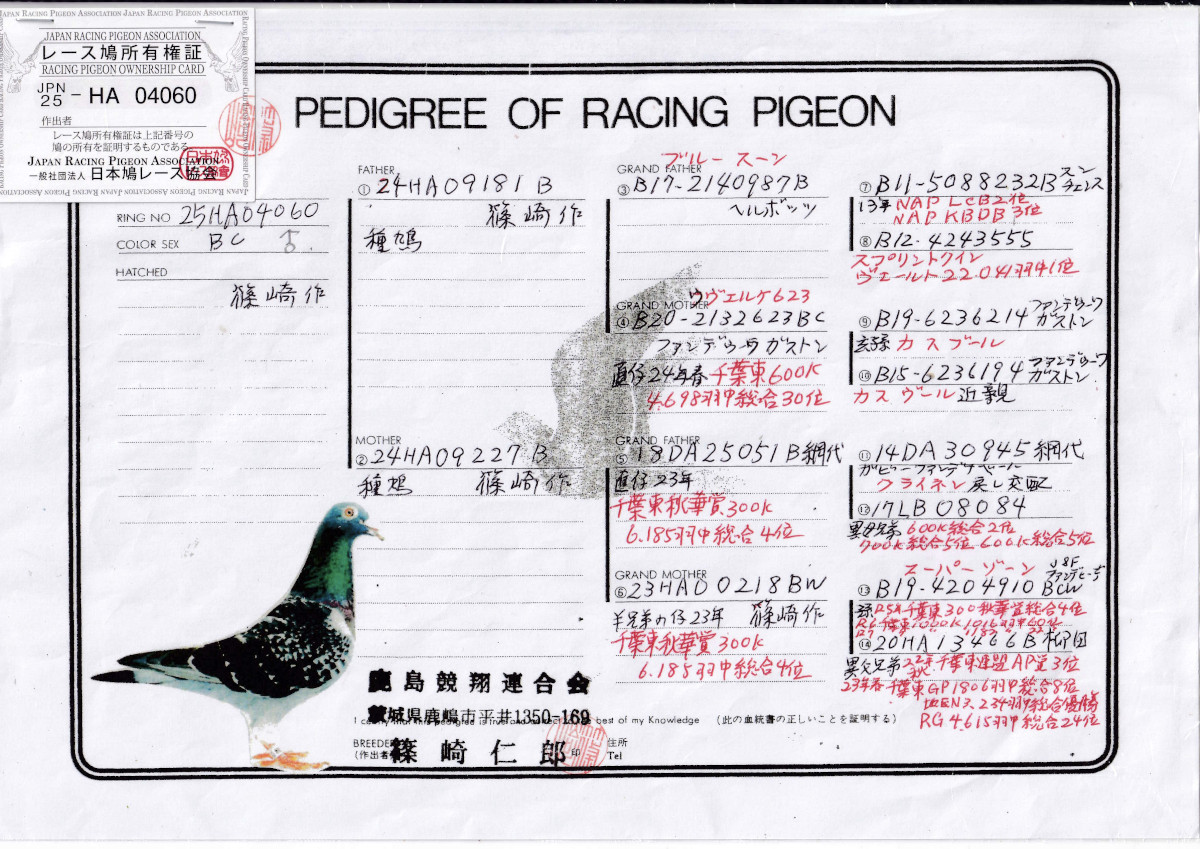 JAPAN RACING PIGEON ASSOCIATION JAPAN RACING PIGEON ASSOCIATION
JAPAN RACING PIGEON ASSOCIATION
レース鳩所有権証
RACING PIGEON OWNERSHIP CARD
JPN
25 - HA 04060
作出者
レース鳩所有権証は上記番号の
鳩の所有を証明するものである。
JAPAN RACING PIGEON ASSOCIATION
一般社団法人 日本鳩レース協会
PEDIGREE OF RACING PIGEON
RING NO 25HA04060
COLOR SEX BC ♂
HATCHED
篠崎作
FATHER
① 24HA09181 B
篠崎作
種鳩
MOTHER
② 24HA09227 B
種鳩 篠崎作
ブルースーン
GRAND FATHER
③ B17-2140987B
ヘルボッツ
ウヴェルケ623
GRAND MOTHER
④ B20-2132623BC
ファンデウーラガストン
直仔24年春千葉東600K
4.698羽中総合30位
GRAND FATHER
⑤ 18DA25051B網代
直仔23年
千葉東秋華賞300K
6.185羽中総合4位
GRAND MOTHER
⑥ 23HA00218BW
半兄弟の仔23年 篠崎作
千葉東秋華賞300K
6.185羽中総合4位
⑦ B11-5088232B
13年 NAP LCB2位
NAP KBDB 3位
⑧ B12-4243555
スプリントクイン
ヴェールト22.041羽41位
⑨ B19-6236214 ガストン
カスブール
⑩ B15-6236194 ガストン
カスヴール近親
⑪ 14DA30945網代
クライネン戻し交配
⑫ 17LB08084
異母兄弟600K総合2位
700K総合5位 600K総合5位
スーパーゾーン
⑬ B19-4204910 BCW
千葉東300秋華賞総合4位
⑭ 20HA13466B
異父兄弟22年秋千葉東連盟AP賞3位
23年春千葉東GP1806羽中総合8位
234羽中総合優勝
RG 4.615羽中総合24位
鹿島競翔連合会
茨城県鹿嶋市平井1350-169
best of my Knowledge (此の血統書の正しいことを証明する)
BREEDER
(作出者) 篠崎仁郎 印
住所
Tel